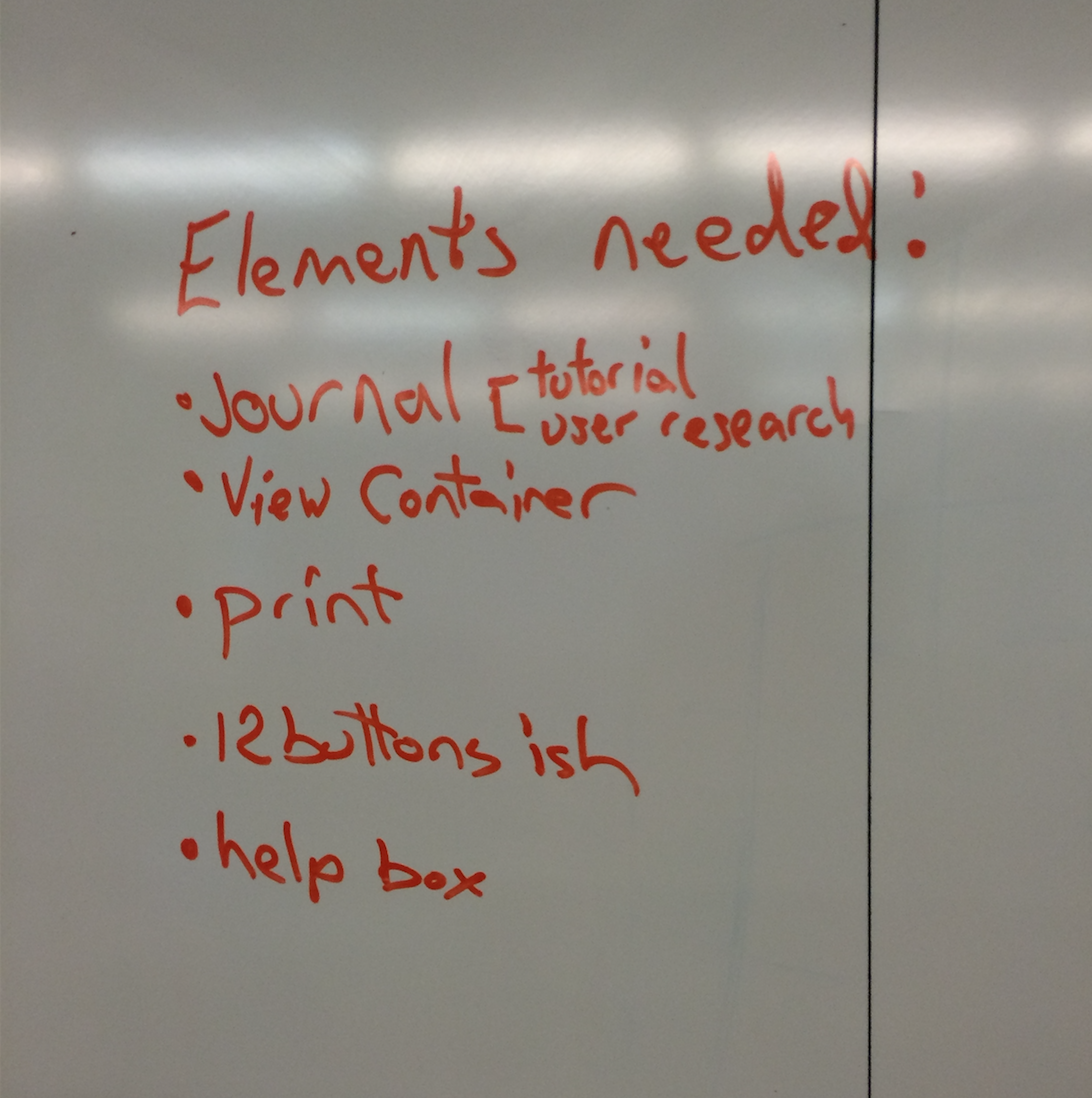 Elements needed:
• Journal [ tutorial
user research
• View Container
• print
• 12 buttons ish
• help box